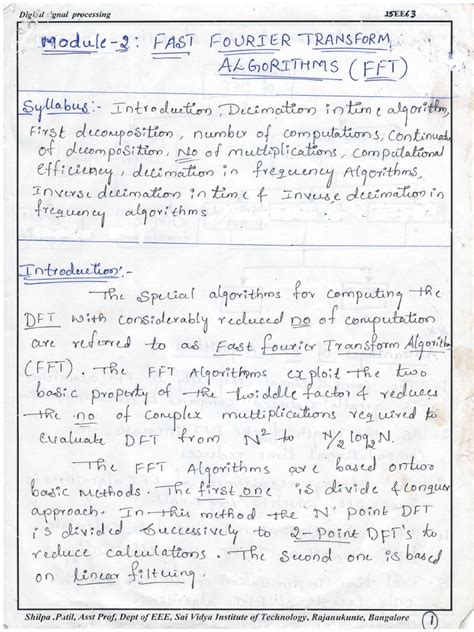 Digital Signal processing 15EE63
Module-2: FAST FOURIER TRANSFORM
ALGORITHMS (FFT)
Syllabus:- Introduction, Decimation in time algorithm,
First decomposition, number of computations, Continuation
of decomposition, No of multiplications, computational
efficiency, decimation in frequency Algorithms,
Inverse decimation in time & Inverse decimation in
frequency algorithms
Introduction:-
The Special algorithms for computing the
DFT with considerably reduced no of computation
are referred to as Fast fourier Transform Algorithm
(FFT). The FFT Algorithms exploit the two
basic property of the twiddle factor & reduces
the no of complex multiplications required to
evaluate DFT from N² to N/2 log₂N.
The FFT Algorithms are based on two
basic Methods. The first one is divide & conquer
approach. In this method the 'N' point DFT
is divided successively to 2-Point DFT's to
reduce calculations. The second one is based
on linear filtering.
1
Shilpa .Patil, Asst Prof, Dept of EEE, Sai Vidya Institute of Technology, Rajanukunte, Bangalore